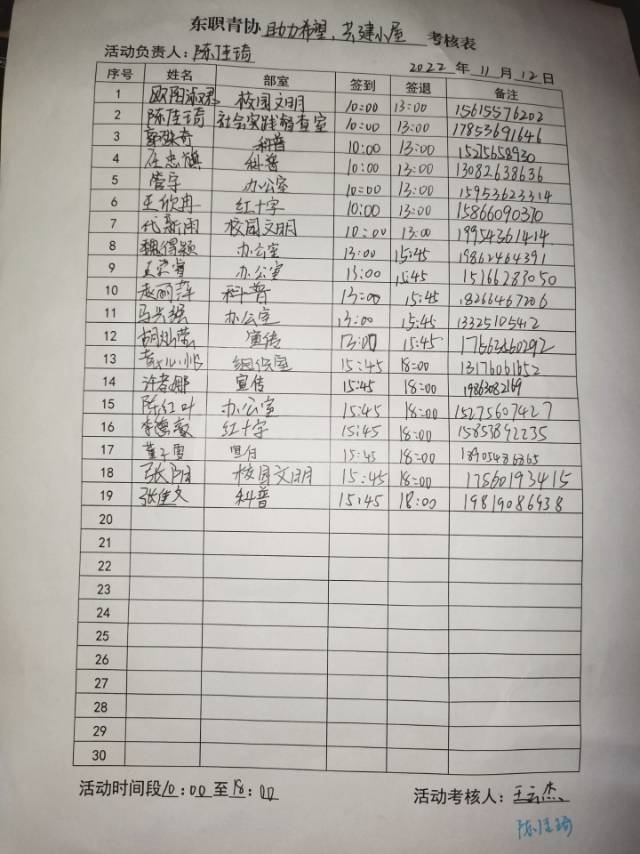 东职青协 助力希望,共建小屋 考核表
活动负责人:陈佳琦 2022 年 11 月 12 日
序号 姓名 部室 签到 签退 备注
1 欧阳淑君 校园文明 10:00 13:00 15615576202
2 陈佳琦 社会实践督查室 10:00 13:00 17853691646
3 科普 10:00 13:00 15275658930
4 庄忠旗 科普 10:00 13:00 13082638636
5 管宇 办公室 10:00 13:00 15953623314
6 王欣冉 红十字 10:00 13:00 15866090370
7 代新雨 校园文明 10:00 13:00 19954361414
8 魏得颖 办公室 13:00 15:45 19862464391
9 办公室 13:00 15:45 15166283050
10 赵丽萍 科普 13:00 15:45 18266467206
11 马兴强 办公室 13:00 15:45 13325105412
12 宣传 13:00 15:45
13 组织室 15:45 18:00 13176061652
14 宣传 15:45 18:00 19863082169
15 陈红叶 办公室 15:45 18:00 15275607427
16 红十字 15:45 18:00 15853892235
17 董子雪 15:45 18:00 18905486865
18 张阳 校园文明 15:45 18:00 17560193415
19 张佳文 科普 15:45 18:00 19819086938
20
21
22
23
24
25
26
27
28
29
30
活动时间段10:00至18:00 活动考核人:王云杰
陈佳琦